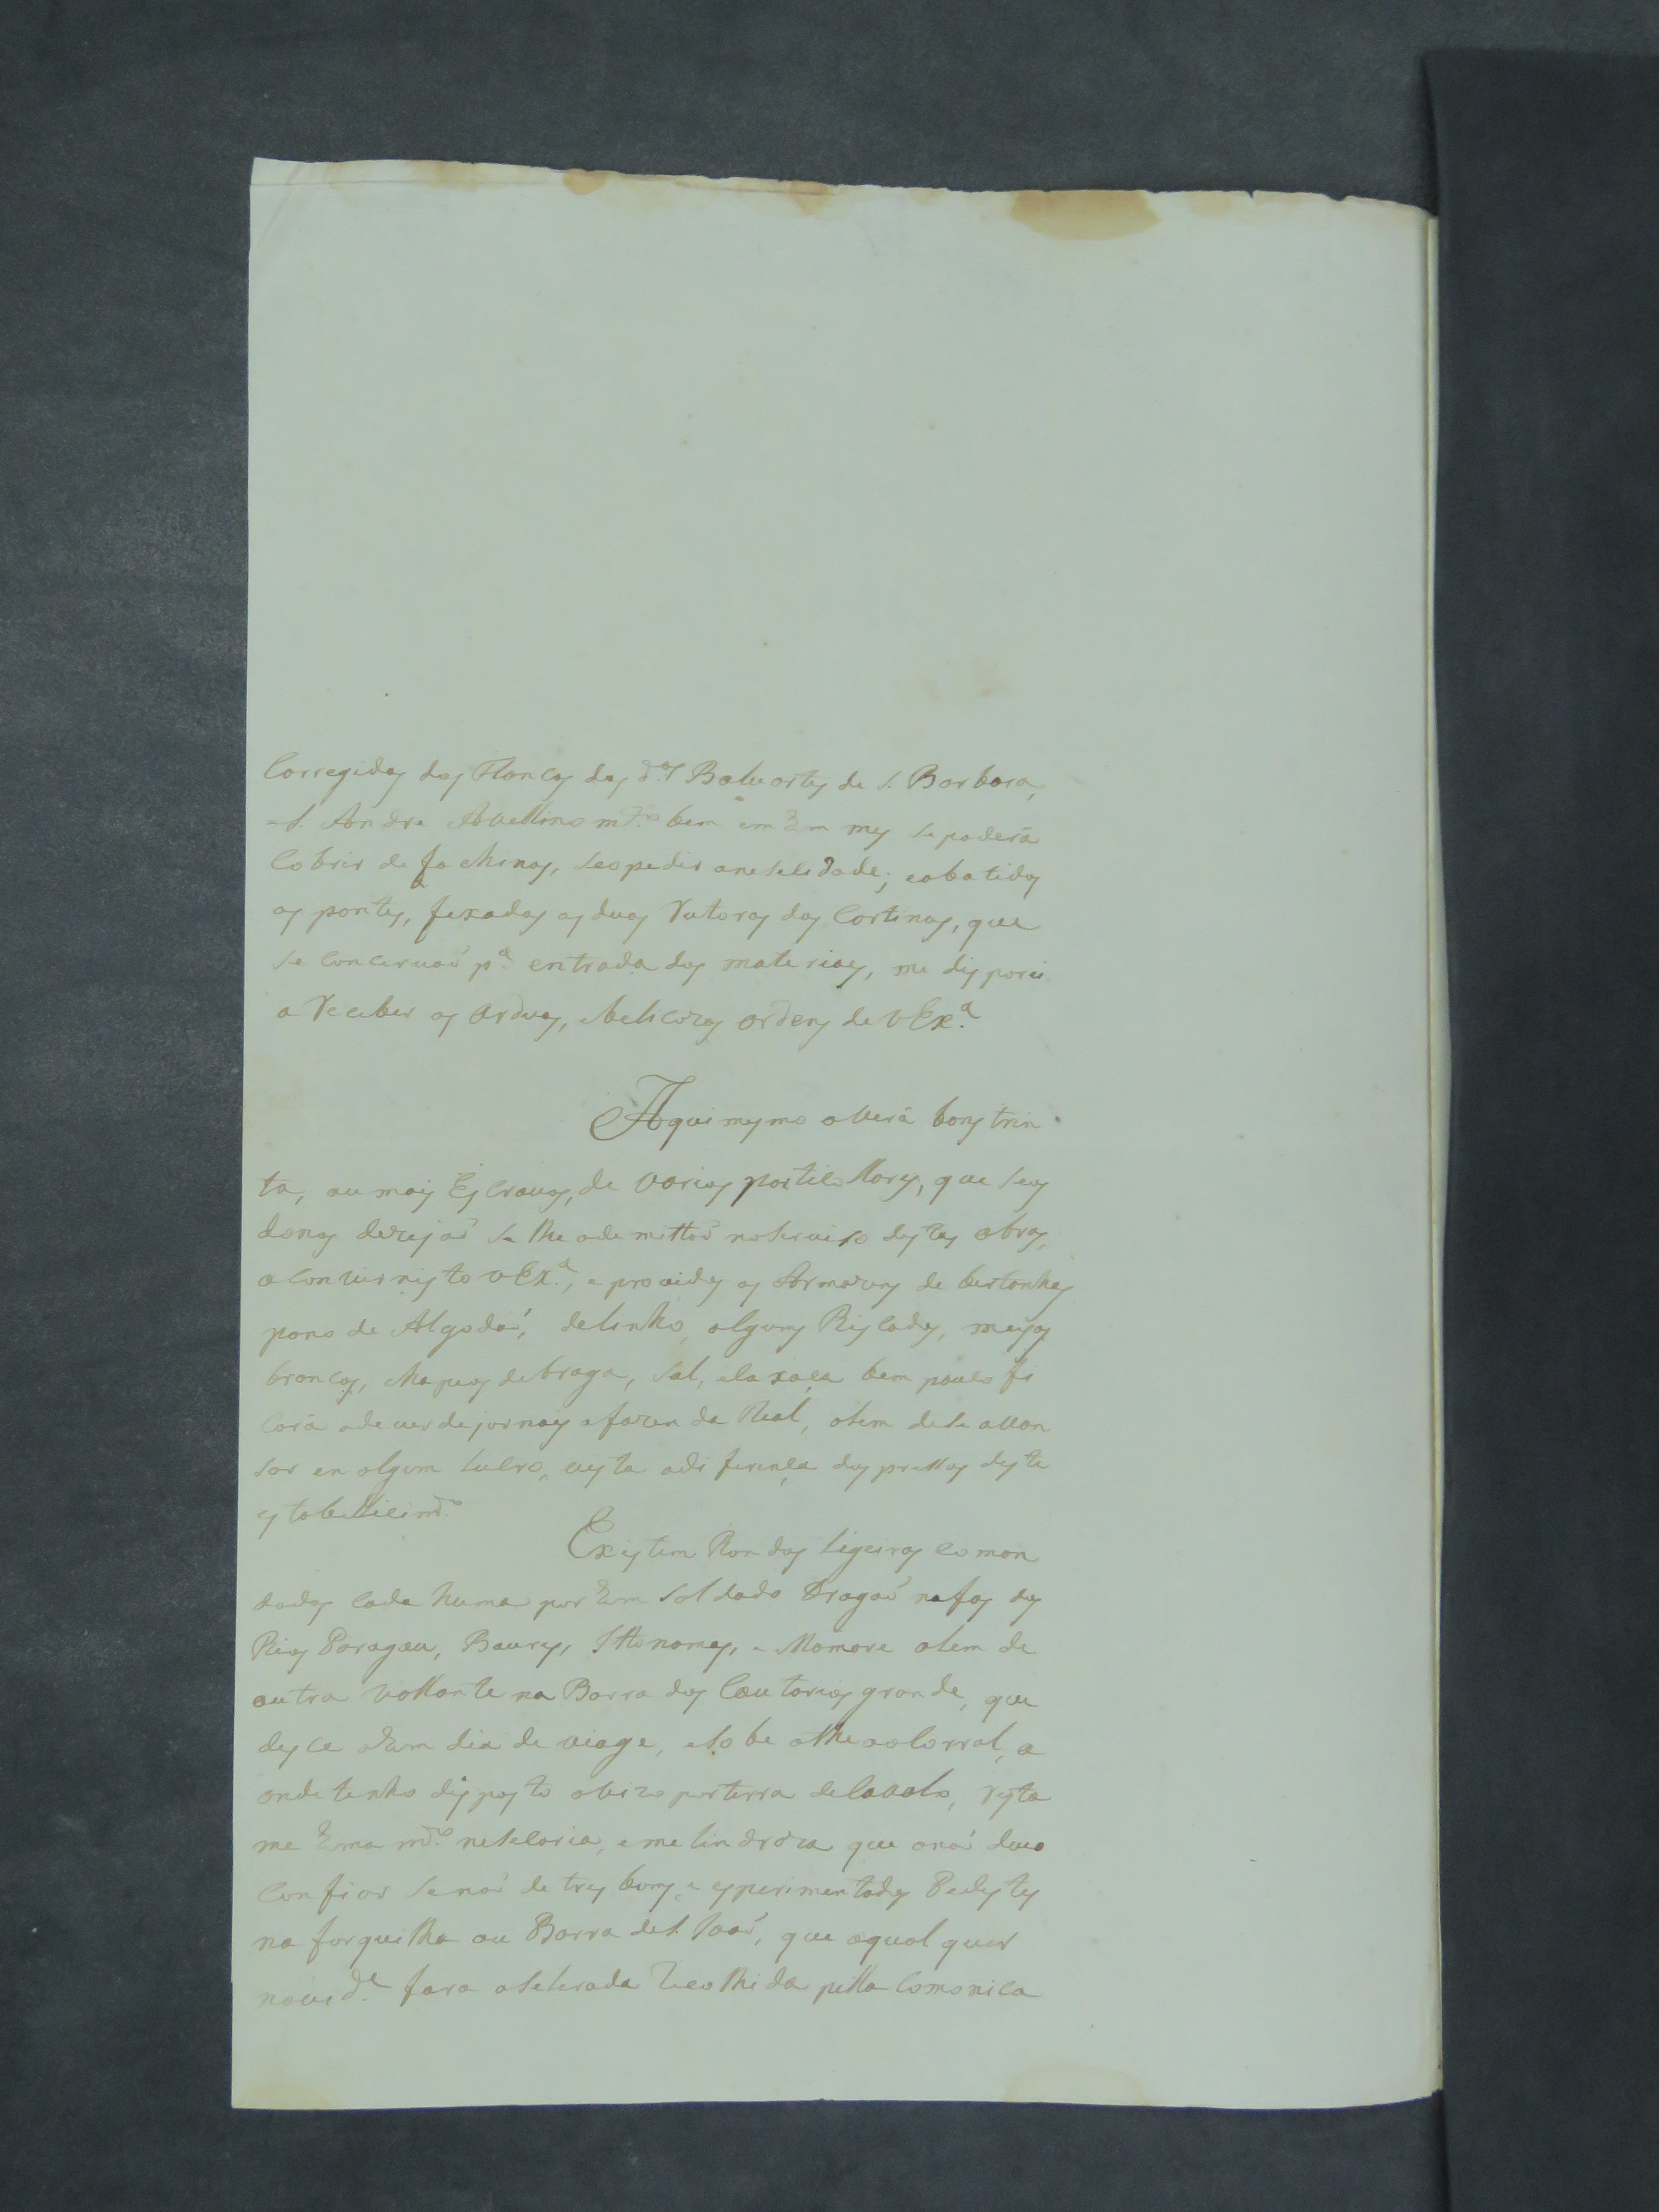 Corregidas dos Flancos dos d.os Baluartes de S. Barbara,
e S. Andre Avellino m.to bem em hum mes se poderá
Cobrir de fachinas, seopedir aneselidade; eabatidas
as pontes, fexadas as duas Roturas das Cortinas, que
se Concervaõ p.a entrada dos materiaes, me disporei
a Receber as Arduas, ebelicozas ordens de VEx.a
Aqui mesmo averá bons trin
ta, ou mais Escravos, de varios particollares, que seus
donos dezejaõ se lhe ademittaõ noserviso destas obras,
aConvir nisto VEx.a, e providos os Armazens de bertanhas
pano de Algodaõ, delinho, alguns Riscados, meyas
brancas, chapeos debraga, sal, ecaxaça bem pouco fi
cará adever dejornaes afazenda Real, alem dese avan
sar en algum lucro, vista adiferença dos pressos deste
estabellicim.to
Existem Rondas ligeiras coman
dadas cada huma por hum Soldado Dragaõ nafos dos
Rios Paragau, Baures, Ittonamas, e Mamore alem de
outra vollante na Barra dos Cautarios grande, que
desce ahum dia de viage, esobe athe aoCorral, a
onde tenho disposto avizo porterra deCavalo, resta
me huma m.to neselaria, e melindroza que anaõ devo
Confiar senaõ de tres bons, e esperimentados Pedestes
na forquilha ou Barra deS. Joaõ, que aqual quer
novid.e fara aselerada Recolhida pella Comonica